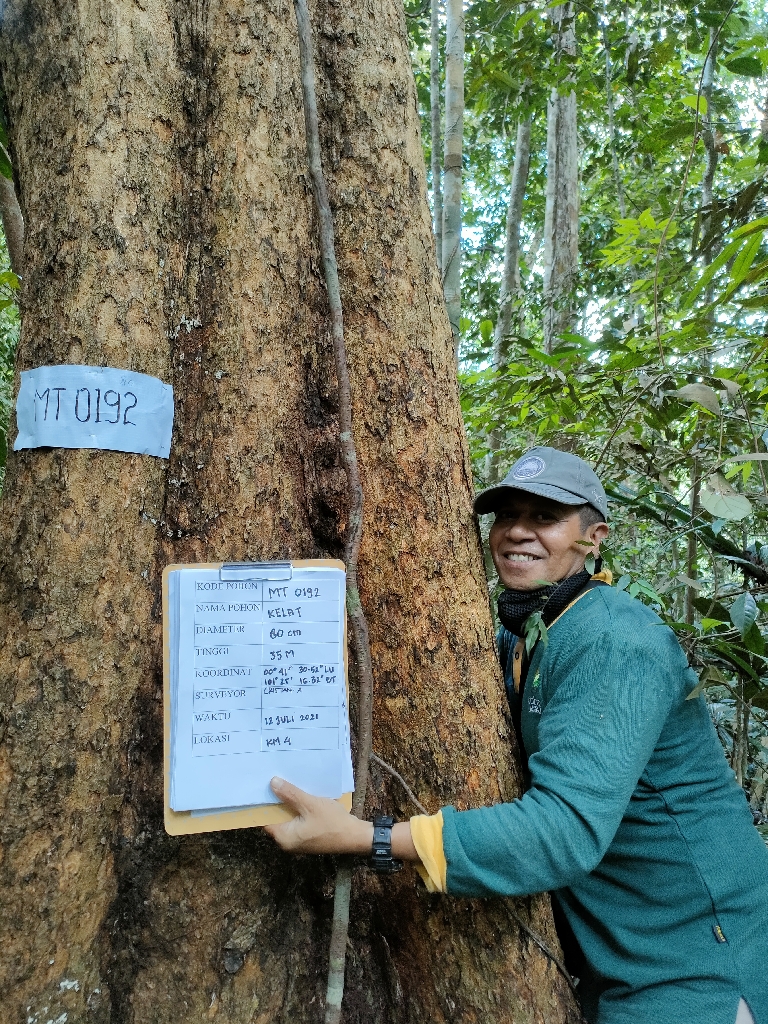 MT 0192
KODE POHON MT 0192
NAMA POHON KELAT
DIAMETER 60 cm
TINGGI 35 M
KOORDINAT 00° 41' 30.52" LU
101° 25' 16.32" BT
SURVEYOR
WAKTU 12 JULI 2021
LOKASI KM 4